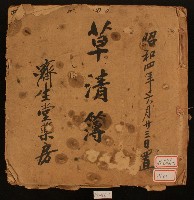 昭和四年六月廿三日置
草清簿
濟生堂藥房